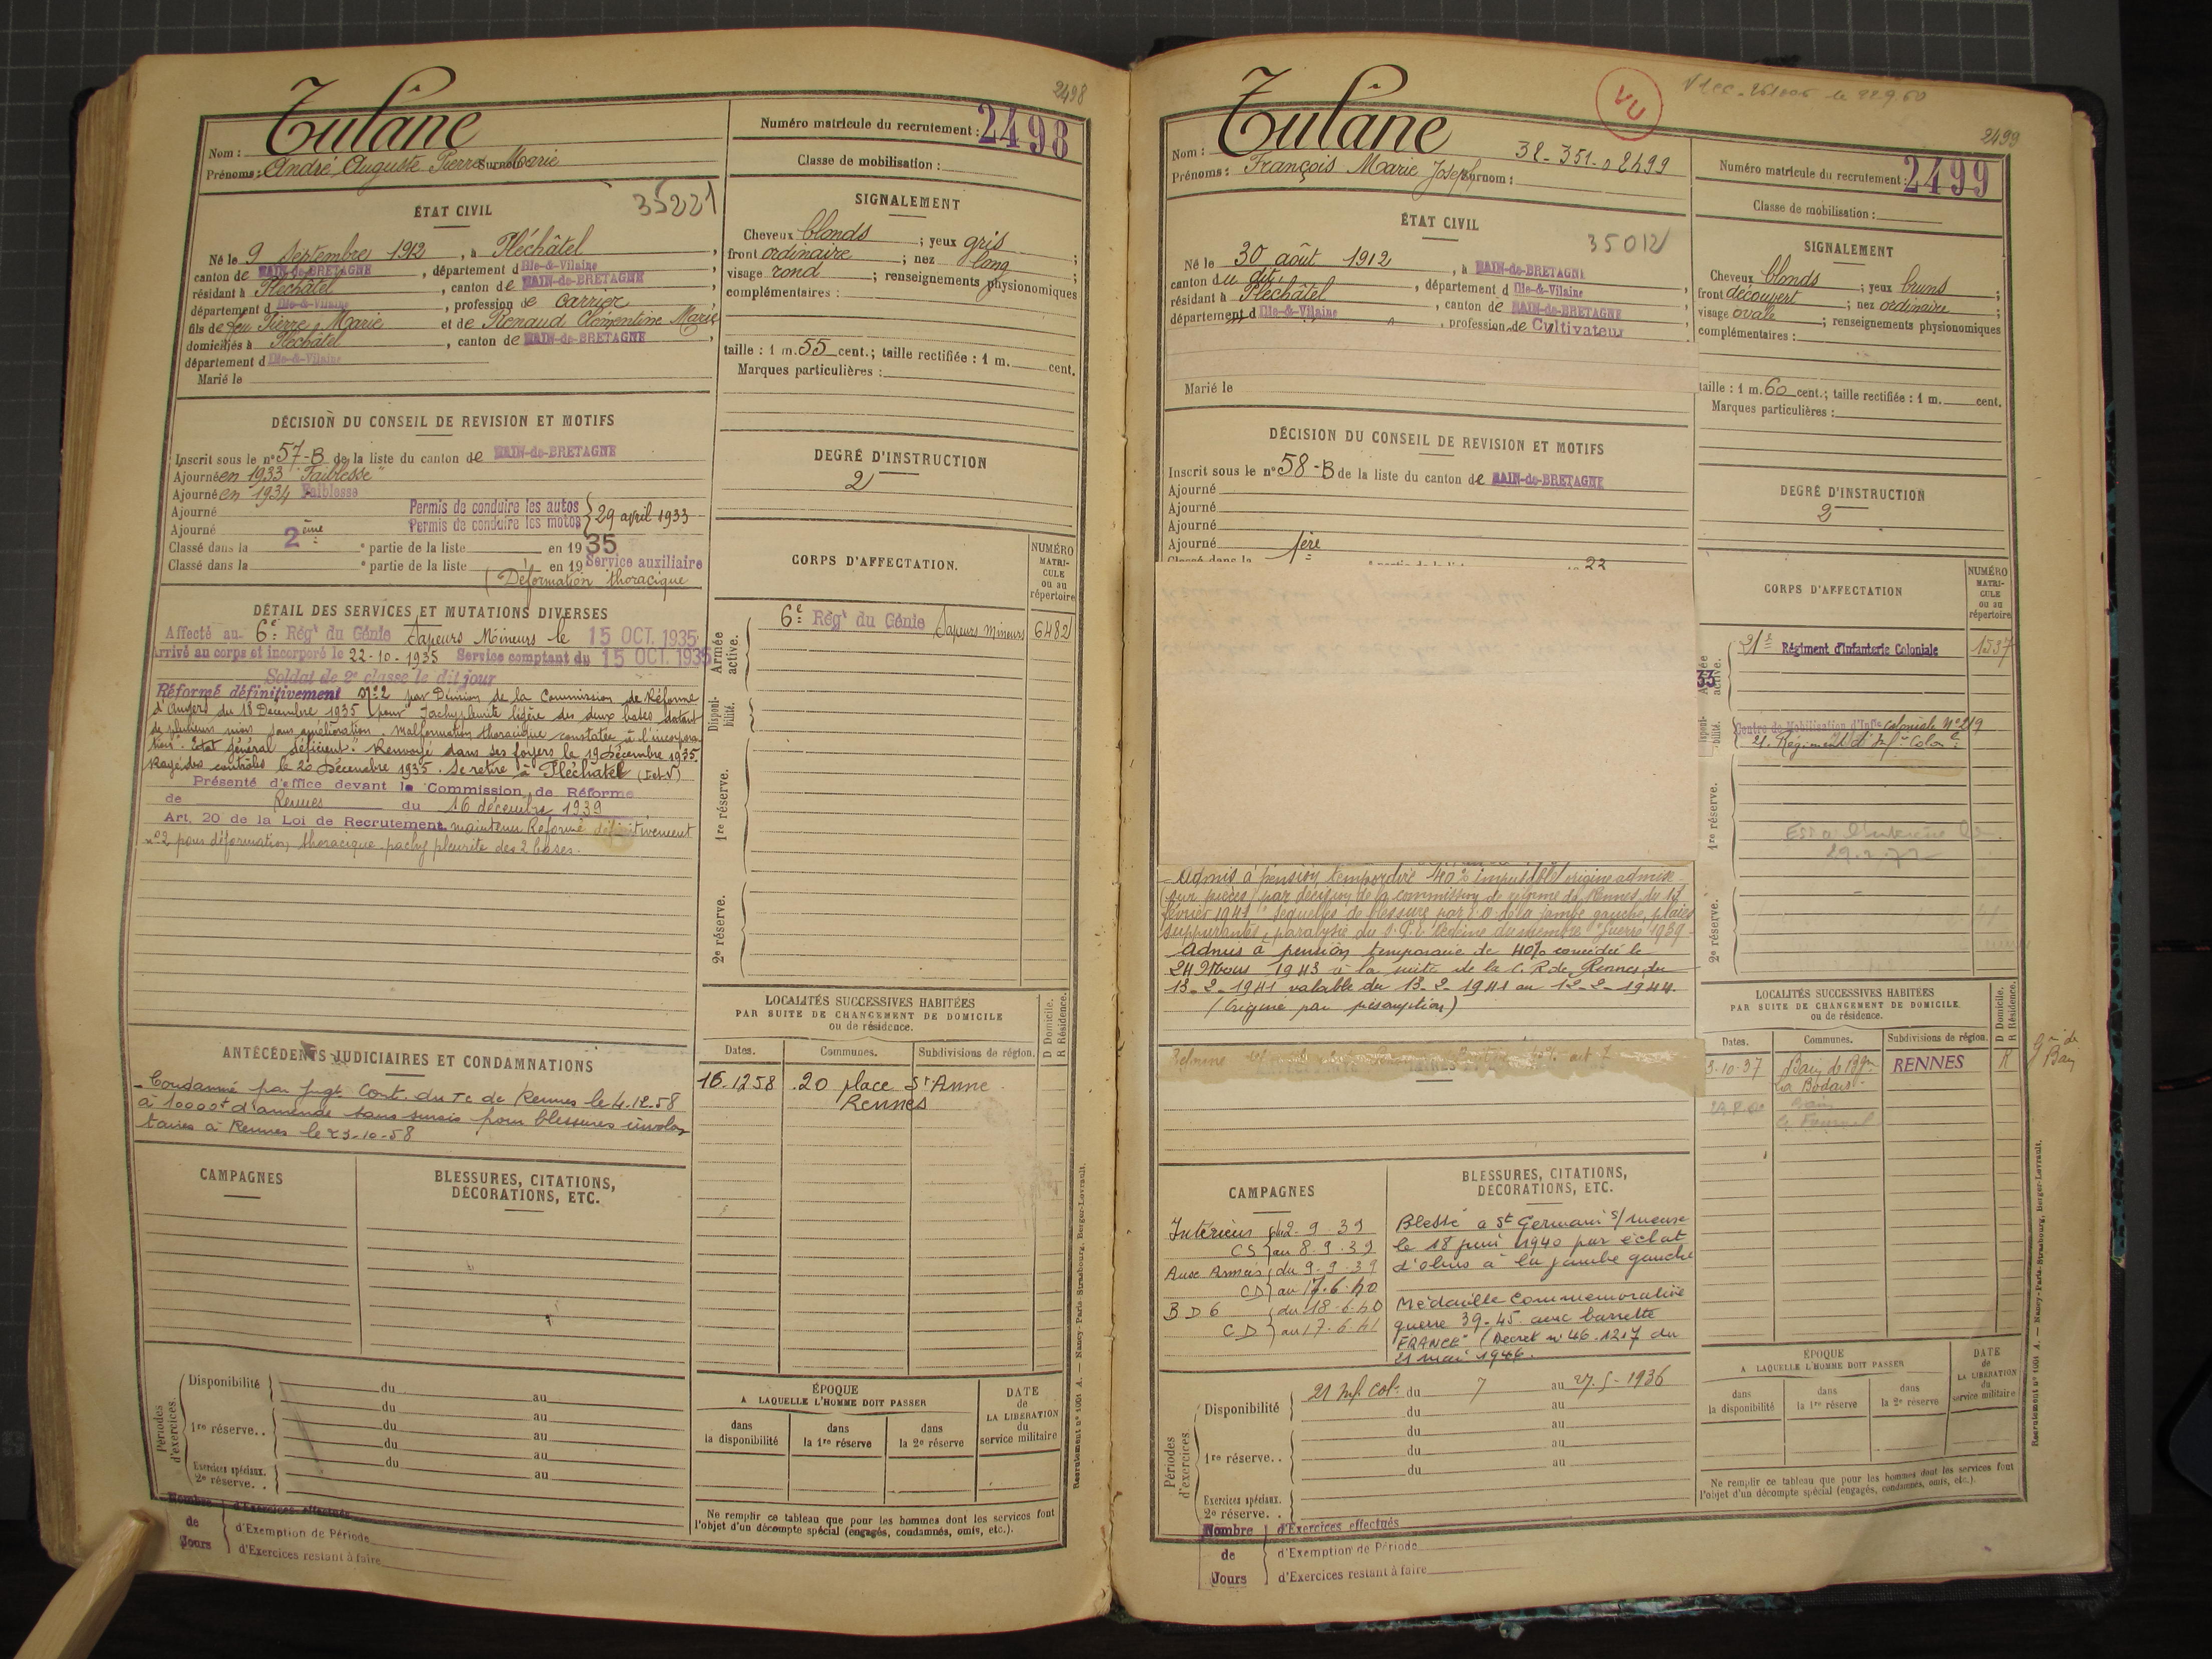 2498
Tulâne
Nom :
Prénoms : André Auguste Pierre Marie
Surnom :
Numéro matricule du recrutement : 2498
Classe de mobilisation :
ÉTAT CIVIL
35221
Né le 9 Septembre 1912, à Pléchâtel,
canton de BAIN-de-BRETAGNE, département d Ille-&-Vilaine,
résidant à Pléchâtel, canton de BAIN-de-BRETAGNE,
département d Ille-&-Vilaine, profession de Carrier
fils de feu Pierre Marie et de Renaud Clémentine Marie
domiciliés à Pléchâtel, canton de BAIN-de-BRETAGNE,
département d Ille-&-Vilaine
Marié le
SIGNALEMENT
Cheveux blonds ; yeux gris
front ordinaire ; nez long ;
visage rond ; renseignements physionomiques
complémentaires :
taille : 1 m. 55 cent.; taille rectifiée : 1 m. cent.
Marques particulières :
DÉCISION DU CONSEIL DE REVISION ET MOTIFS
Inscrit sous le n° 57-B de la liste du canton de BAIN-de-BRETAGNE
Ajourné en 1933 "Faiblesse"
Ajourné en 1934 Faiblesse
Ajourné Permis de conduire les autos
Ajourné Permis de conduire les motos } 29 avril 1933
Classé dans la 2ème partie de la liste en 1935
Classé dans la e partie de la liste en 19 Service auxiliaire
(Déformation thoracique
DEGRÉ D'INSTRUCTION
2
DÉTAIL DES SERVICES ET MUTATIONS DIVERSES
Affecté au 6e Régt du Génie Sapeurs Mineurs le 15 OCT. 1935
Arrivé au corps et incorporé le 22-10-1935 Service comptant du 15 OCT. 1935
Soldat de 2e classe le dit jour
Réformé définitivement N°2 par Décision de la Commission de Réforme
d'Angers du 18 Décembre 1935 pour légère des deux bases datant
de plusieurs mois sans amélioration. Malformation thoracique constatée à l'incorpora
tion. Etat général déficient." Renvoyé dans ses foyers le 19 Décembre 1935.
Rayé des contrôles le 20 Décembre 1935. Se retire à Pléchâtel (I-et-V)
Présenté d'office devant la Commission de Réforme
de Rennes du 16 décembre 1939
Art. 20 de la Loi de Recrutement maintenu Réformé définitivement
n°2 pour déformation thoracique pachy pleurite des 2 bases.
CORPS D'AFFECTATION.
NUMÉRO MATRI-CULE ou au répertoire
Armée active.
6e Régt du Génie Sapeurs Mineurs 6482
Disponi-bilité.
1re réserve.
2e réserve.
ANTÉCÉDENTS JUDICIAIRES ET CONDAMNATIONS
- Condamné par jugt Cont. du Tc de Rennes le 4.12.58
à 10000f d'amende sans sursis pour blessures involon
taires à Rennes le 23-10-58
LOCALITÉS SUCCESSIVES HABITÉES
PAR SUITE DE CHANGEMENT DE DOMICILE
ou de résidence.
D Domicile.
R Résidence.
Dates. Communes. Subdivisions de région.
16.12.58 20 place St Anne
Rennes
CAMPAGNES
BLESSURES, CITATIONS,
DÉCORATIONS, ETC.
Périodes d'exercices.
Disponibilité du au
du au
1re réserve.. du au
du au
du au
Exercices spéciaux.
2e réserve. . au
Nombre de Jours
d'Exercices effectués
d'Exemption de Période
d'Exercices restant à faire
ÉPOQUE
A LAQUELLE L'HOMME DOIT PASSER
dans la disponibilité
dans la 1re réserve
dans la 2e réserve
DATE de LA LIBÉRATION du service militaire
Ne remplir ce tableau que pour les hommes dont les services font
l'objet d'un décompte spécial (engagés, condamnés, omis, etc.).
Recrutement n° 1001 A. — Nancy-Paris-Strasbourg, Berger-Levrault.
VU
2499
Tulâne
Nom :
38-351-02499
Prénoms : François Marie Joseph
Surnom :
Numéro matricule du recrutement : 2499
Classe de mobilisation :
ÉTAT CIVIL
35012
Né le 30 août 1912, à BAIN-de-BRETAGNE
canton du dit, département d Ille-&-Vilaine,
résidant à Pléchâtel, canton de BAIN-de-BRETAGNE,
département d Ille-&-Vilaine, profession de Cultivateur
Marié le
SIGNALEMENT
Cheveux blonds ; yeux bruns
front découvert ; nez ordinaire ;
visage ovale ; renseignements physionomiques
complémentaires :
taille : 1 m. 60 cent.; taille rectifiée : 1 m. cent.
Marques particulières :
DÉCISION DU CONSEIL DE REVISION ET MOTIFS
Inscrit sous le n° 58-B de la liste du canton de BAIN-de-BRETAGNE
Ajourné
Ajourné
Ajourné
Ajourné
1ère
DEGRÉ D'INSTRUCTION
2
CORPS D'AFFECTATION
NUMÉRO MATRI-CULE ou au répertoire
21e Régiment d'Infanterie Coloniale 1537
33
Centre de Mobilisation d'Infie Coloniale N°219
21e Régiment d'Infie Colone
1re réserve.
2e réserve.
Admis à pension temporaire 40% imputable origine admise
sur pièces par décision de la commission de réforme de Rennes du 13
février 1941 "Séquelles de blessure par E.O. de la jambe gauche, plaies
suppurantes, paralysie du S.P.E. du membre" Guerre 1939
Admis à pension temporaire de 40% concédée le
24 Mars 1943 à la suite de la C.R. de Rennes du
13-2-1941 valable du 13-2-1941 au 12-2-1944.
(Origine par présomption)
LOCALITÉS SUCCESSIVES HABITÉES
PAR SUITE DE CHANGEMENT DE DOMICILE
ou de résidence.
D Domicile.
R Résidence.
Dates. Communes. Subdivisions de région.
3-10-37 Bain de Bgne RENNES R
CAMPAGNES
Intérieur du 2.9.39
CS au 8.9.39
Aux Armées du 9.9.39
CD au 17.6.40
B D 6 du 18.6.40
CD au 17.6.41
BLESSURES, CITATIONS,
DÉCORATIONS, ETC.
Blessé à St Germain s/ meuse
le 18 juin 1940 par éclat
d'obus à la jambe gauche
Médaille Commémorative
guerre 39-45 avec barrette
"FRANCE" (Décret n° 46.1217 du
21 mai 1946.
Périodes d'exercices.
Disponibilité 21 Inf. Col. du 7 au 27-5-1936
du au
1re réserve.. du au
du au
du au
Exercices spéciaux.
2e réserve. .
Nombre de Jours
d'Exercices effectués
d'Exemption de Période
d'Exercices restant à faire
ÉPOQUE
A LAQUELLE L'HOMME DOIT PASSER
dans la disponibilité
dans la 1re réserve
dans la 2e réserve
DATE de LA LIBÉRATION du service militaire
Ne remplir ce tableau que pour les hommes dont les services font
l'objet d'un décompte spécial (engagés, condamnés, omis, etc.).
Recrutement n° 1001 A. — Nancy-Paris-Strasbourg, Berger-Levrault.